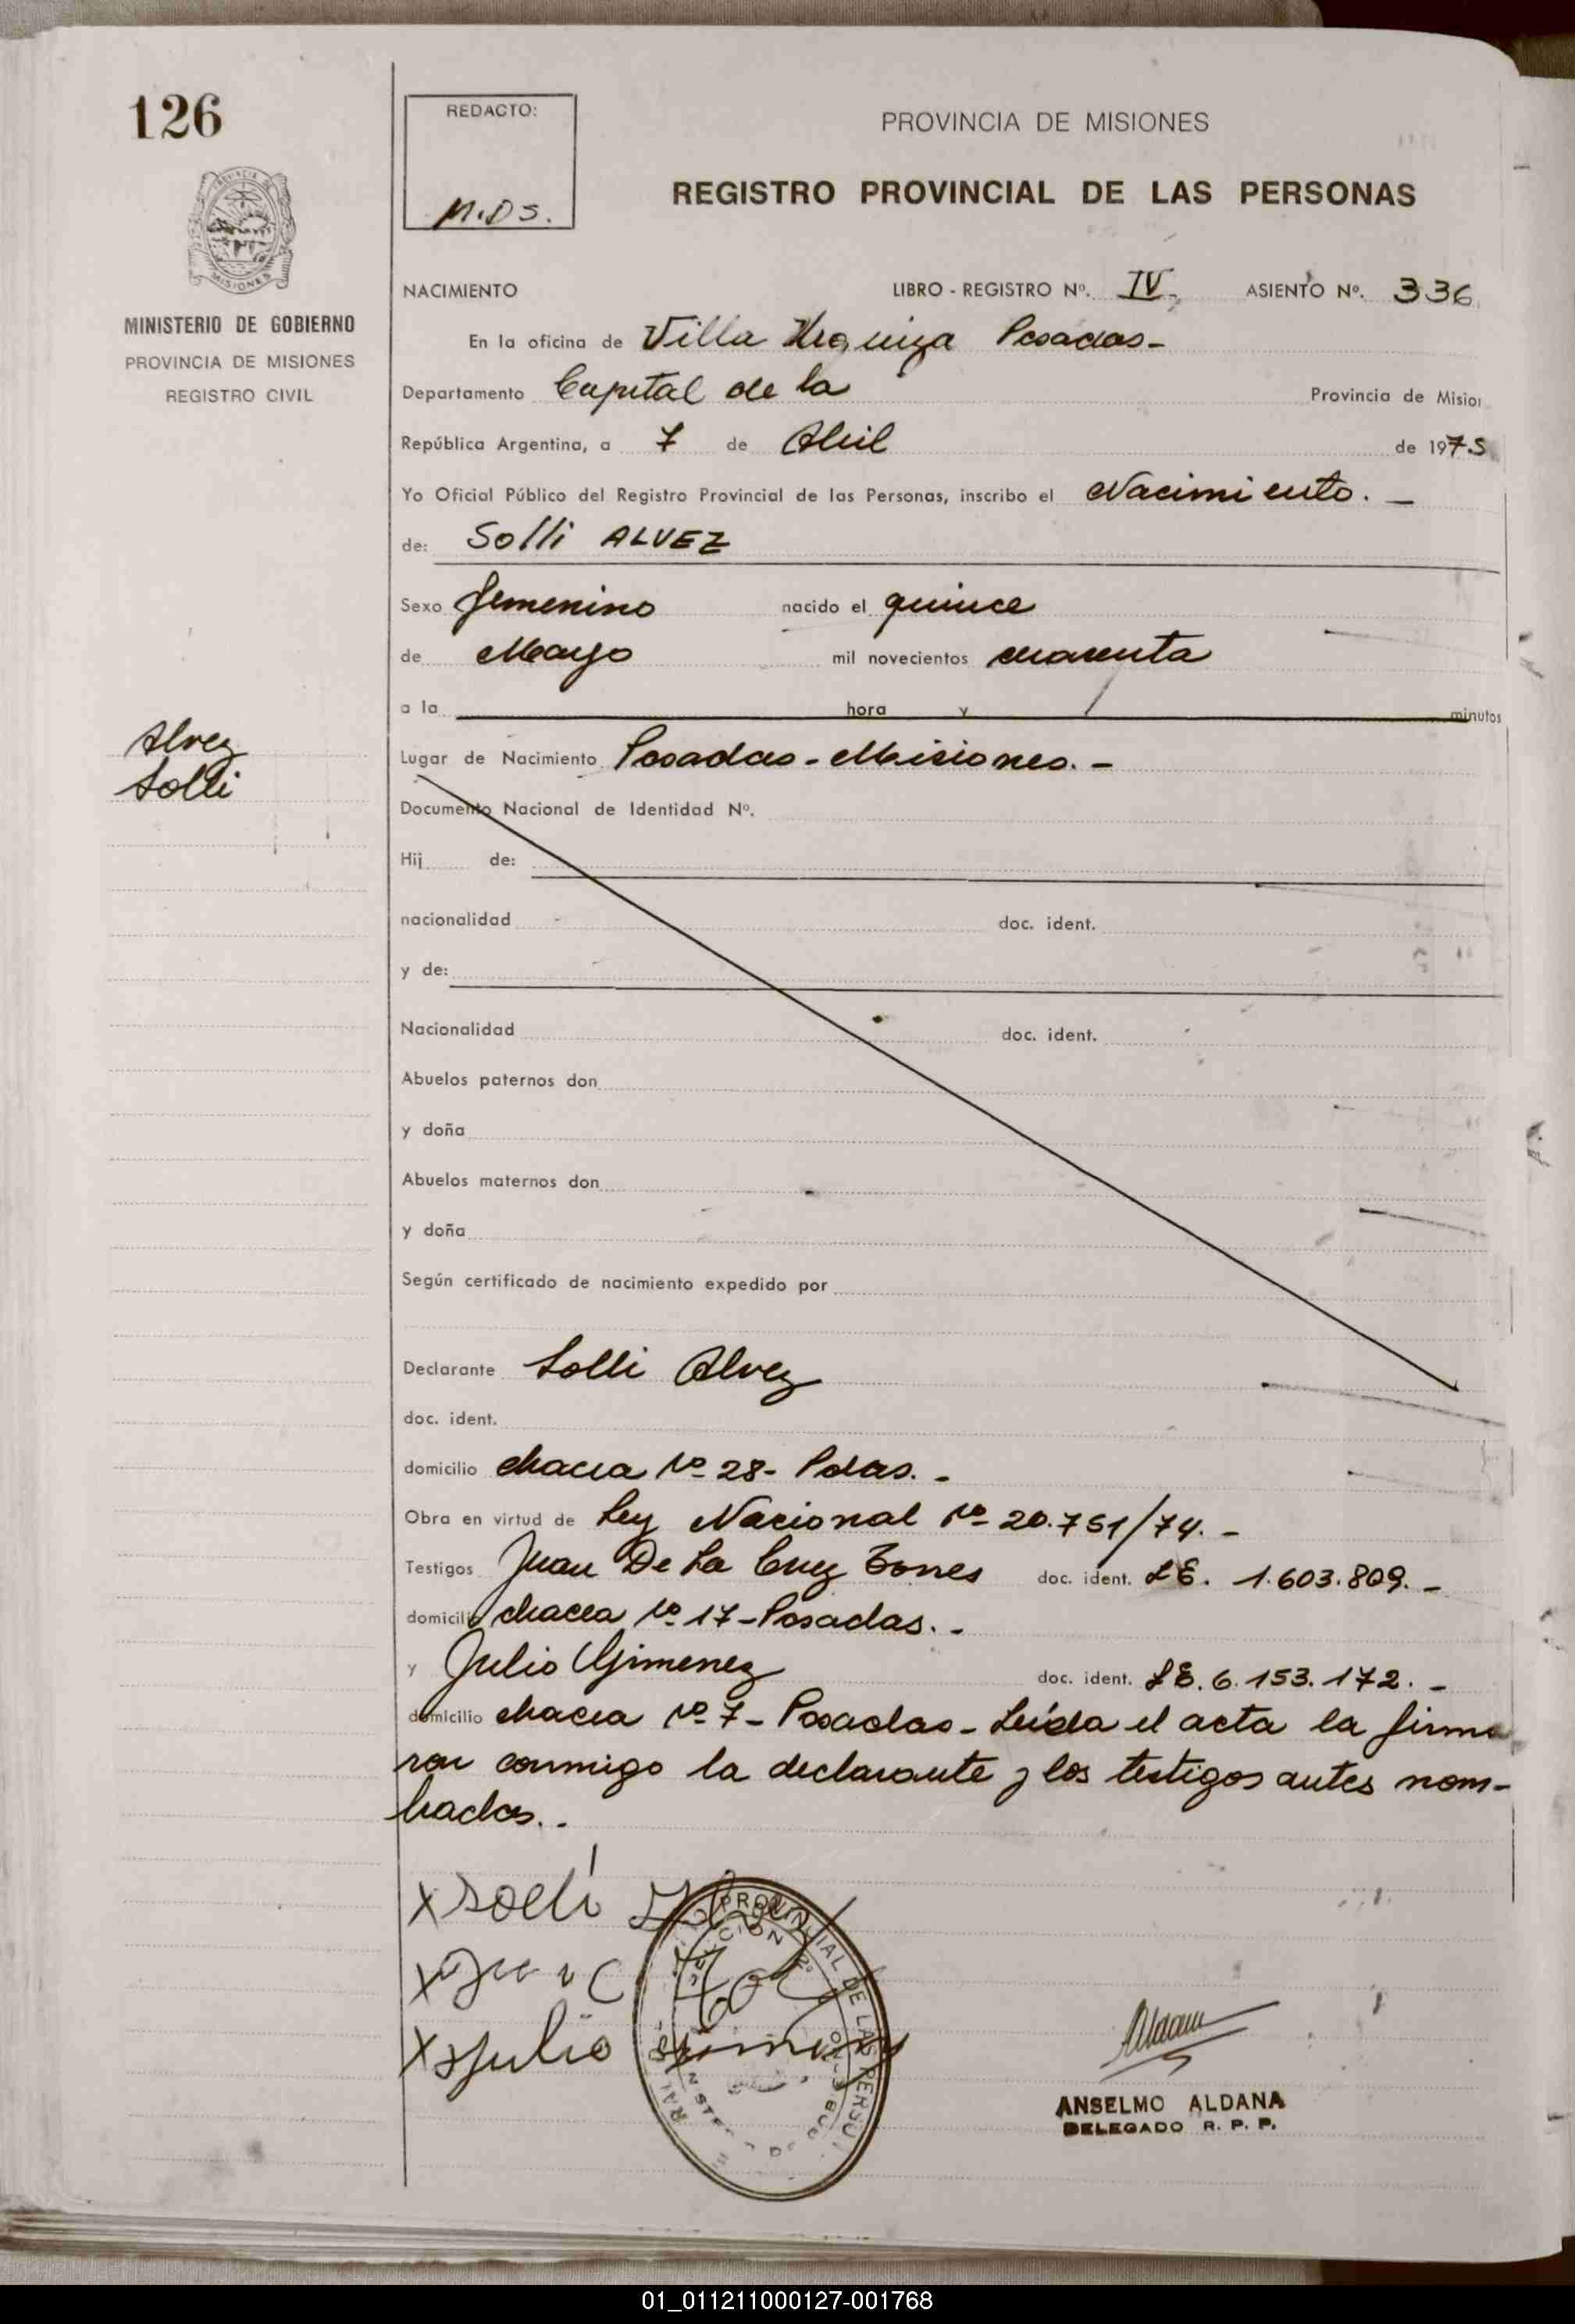 126
REDACTO:
M.D S.
PROVINCIA DE MISIONES
REGISTRO PROVINCIAL DE LAS PERSONAS
MISIONES
MINISTERIO DE GOBIERNO
PROVINCIA DE MISIONES
REGISTRO CIVIL
NACIMIENTO LIBRO - REGISTRO Nº. IV. ASIENTO Nº. 336
En la oficina de Villa Urquiza Posadas-
Departamento Capital de la Provincia de Mision
República Argentina, a 7 de Abril de 1975
Yo Oficial Público del Registro Provincial de las Personas, inscribo el Nacimiento. -
de: Solli ALVEZ
Sexo femenino nacido el quince
de Mayo mil novecientos cuarenta
a la hora y minutos
Alvez
Solli
Lugar de Nacimiento Posadas - Misiones. -
Documento Nacional de Identidad Nº.
Hij de:
nacionalidad doc. ident.
y de:
Nacionalidad doc. ident.
Abuelos paternos don
y doña
Abuelos maternos don
y doña
Según certificado de nacimiento expedido por
Declarante Solli Alvez
doc. ident.
domicilio chacra Nº 28- Pdas. -
Obra en virtud de Ley Nacional Nº 20.751/74. -
Testigos Juan De La Cruz Torres doc. ident. LE. 1.603.809. -
domicilio chacra Nº 17-Posadas. -
y Julio Gimenez doc. ident. LE. 6.153.172. -
domicilio chacra Nº 7- Posadas- Leída el acta la firma
ron conmigo la declarante y los testigos antes nom-
brados. -
x Soeli
x Juan C
x Julio Gimenez
PROVINCIAL DE LAS PERSO
Aldana
ANSELMO ALDANA
DELEGADO R. P. P.
01_011211000127-001768